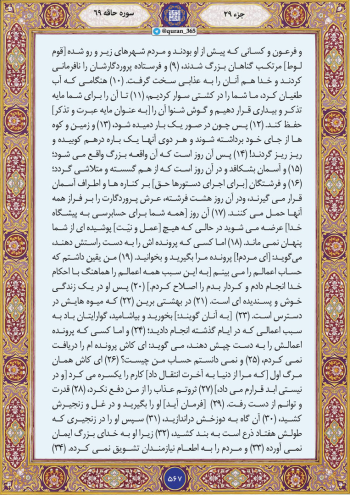 جزء ۲۹
@quran_365
سوره حاقه ۶۹
و فرعون و کسانی که پیش از او بودند و مردم شهرهای زیر و رو شده [قوم
لوط] مرتکب گناهان بزرگ شدند، (۹) و فرستاده پروردگارشان را نافرمانی
کردند و خدا هم آنان را به عذابی سخت گرفت. (۱۰) هنگامی که آب
طغیان کرد، ما شما را در کشتی سوار کردیم، (۱۱) تا آن را برای شما مایه
تذکر و بیداری قرار دهیم و گوش شنوا آن را [به عنوان مایه عبرت و تذکر]
حفظ کند. (۱۲) پس چون در صور یک بار دمیده شود، (۱۳) و زمین و کوه
ها از جای خود برداشته شوند و هر دوی آنها یک باره درهم کوبیده و
ریز ریز گردند! (۱۴) پس آن روز است که آن واقعه بزرگ واقع می شود؛
(۱۵) و آسمان بشکافد و در آن روز است که از هم گسسته و متلاشی گردد؛
(۱۶) و فرشتگان [برای اجرای دستورها حق] بر کناره ها و اطراف آسمان
قرار می گیرند، ودر آن روز هشت فرشته، عرش پروردگارت را بر فراز همه
آنها حمل می کنند. (۱۷) آن روز [همه شما برای حسابرسی به پیشگاه
خدا] عرضه می شوید در حالی که هیچ [عمل و نیّت] پوشیده ای از شما
پنهان نمی ماند. (۱۸) اما کسی که پرونده اش را به دست راستش دهند،
می‌گوید: [ای مردم!] پرونده مرا بگیرید و بخوانید. (۱۹) من یقین داشتم که
حساب اعمالم را می بینم [به این سبب همه اعمالم را هماهنگ با احکام
خدا انجام دادم و کردار بدم را اصلاح کردم.] (۲۰) پس او در یک زندگی
خوش و پسندیده ای است. (۲۱) در بهشتی برین (۲۲) که میوه هایش در
دسترس است. (۲۳) [به آنان گویند:] بخورید و بیاشامید، گوارایتان باد به
سبب اعمالی که در ایام گذشته انجام دادید؛ (۲۴) و اما کسی که پرونده
اعمالش را به دست چپش دهند، می گوید: ای کاش پرونده ام را دریافت
نمی کردم، (۲۵) و نمی دانستم حساب من چیست؟ (۲۶) ای کاش همان
مرگ اول [که مرا از دنیا به آخرت انتقال داد] کارم را یکسره می کرد [و در
نیستی ابد قرارم می داد.] (۲۷) ثروتم عذاب را از من دفع نکرد، (۲۸) قدرت
و توانم از دست رفت. (۲۹) [فرمان آید] او را بگیرید و در غل و زنجیرش
کشید، (۳۰) آن گاه به دوزخش دراندازید، (۳۱) سپس او را در زنجیری که
طولش هفتاد ذرع است به بند کشید؛ (۳۲) زیرا او به خدای بزرگ ایمان
نمی آورده (۳۳) و مردم را به اطعام نیازمندان تشویق نمی کرده. (۳۴)
۵۶۷